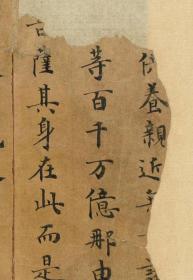 養親近
等百千万億那由
薩其身在此而是